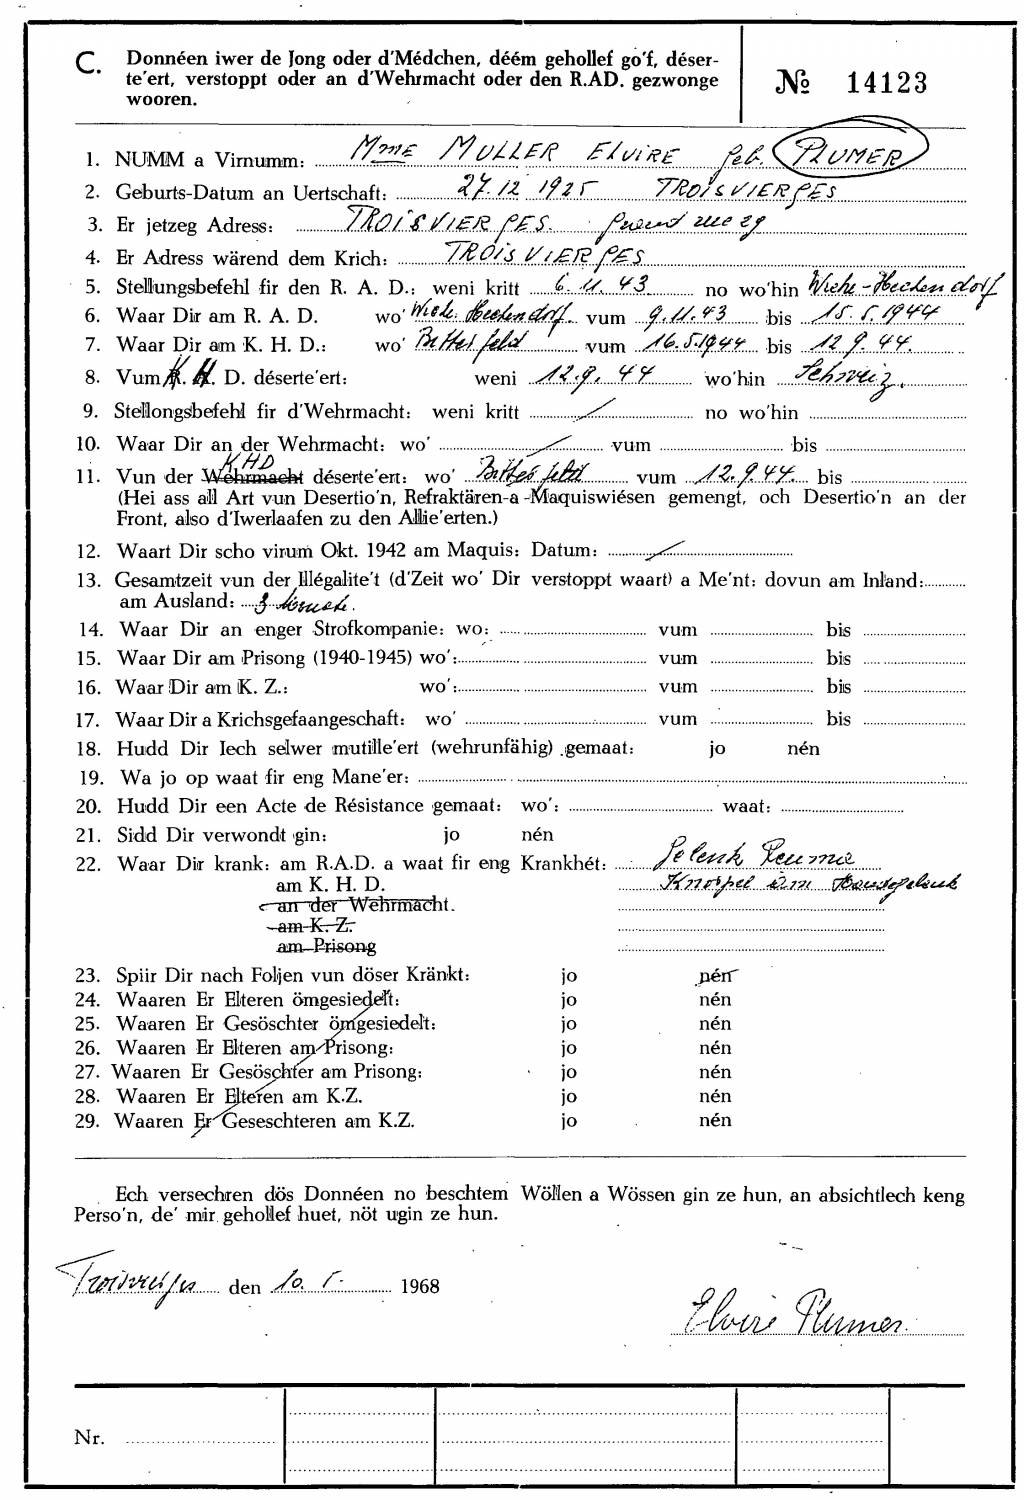 C. Donnéen iwer de Jong oder d'Médchen, déém gehollef go'f, déser-
te'ert, verstoppt oder an d'Wehrmacht oder den R.AD. gezwonge
wooren.
№ 14123
1. NUMM a Virnumm: Mme MULLER ELVIRE geb. PLUMER
2. Geburts-Datum an Uertschaft: 27.12.1925 TROISVIERGES
3. Er jetzeg Adress: TROISVIERGES. Grand rue 29
4. Er Adress wärend dem Krich: TROISVIERGES
5. Stellungsbefehl fir den R. A. D.: weni kritt 6.11.43 no wo'hin Wiehe-Hechendorf
6. Waar Dir am R. A. D. wo' Wiehe. Hechendorf. vum 9.11.43 bis 15.5.1944
7. Waar Dir am K. H. D.: wo' Bitterfeld vum 16.5.1944 bis 12.9.44.
8. Vum K. H. D. déserte'ert: weni 12.9.44 wo'hin Schweiz.
9. Stellongsbefehl fir d'Wehrmacht: weni kritt / no wo'hin
10. Waar Dir an der Wehrmacht: wo' / vum bis
KHD
11. Vun der Wehrmacht déserte'ert: wo' Bitterfeld vum 12.9.44. bis
(Hei ass all Art vun Desertio'n, Refraktären-a-Maquiswiésen gemengt, och Desertio'n an der
Front, also d'Iwerlaafen zu den Allie'erten.)
12. Waart Dir scho virum Okt. 1942 am Maquis: Datum: /
13. Gesamtzeit vun der Illégalite't (d'Zeit wo' Dir verstoppt waart) a Me'nt: dovun am Inland:
am Ausland: 3 Monate.
14. Waar Dir an enger Strofkompanie: wo: vum bis
15. Waar Dir am Prisong (1940-1945) wo': vum bis
16. Waar Dir am K. Z.: wo': vum bis
17. Waar Dir a Krichsgefaangeschaft: wo' vum bis
18. Hudd Dir Iech selwer mutille'ert (wehrunfähig) gemaat: jo nén
19. Wa jo op waat fir eng Mane'er:
20. Hudd Dir een Acte de Résistance gemaat: wo': waat:
21. Sidd Dir verwondt gin: jo nén
22. Waar Dir krank: am R.A.D. a waat fir eng Krankhét: Gelenk Reuma
am K. H. D. Knorpel am Handgelenk
an der Wehrmacht.
am K. Z.
am Prisong
23. Spiir Dir nach Foljen vun döser Kränkt: jo nén
24. Waaren Er Elteren ömgesiedelt: jo nén
25. Waaren Er Gesöschter ömgesiedelt: jo nén
26. Waaren Er Elteren am Prisong: jo nén
27. Waaren Er Gesöschter am Prisong: jo nén
28. Waaren Er Elteren am K.Z. jo nén
29. Waaren Er Geseschteren am K.Z. jo nén
Ech versechren dös Donnéen no beschtem Wöllen a Wössen gin ze hun, an absichtlech keng
Perso'n, de' mir gehollef huet, nöt ugin ze hun.
Troisvierges den 10. 5. 1968
Elvire Plumer.
Nr.